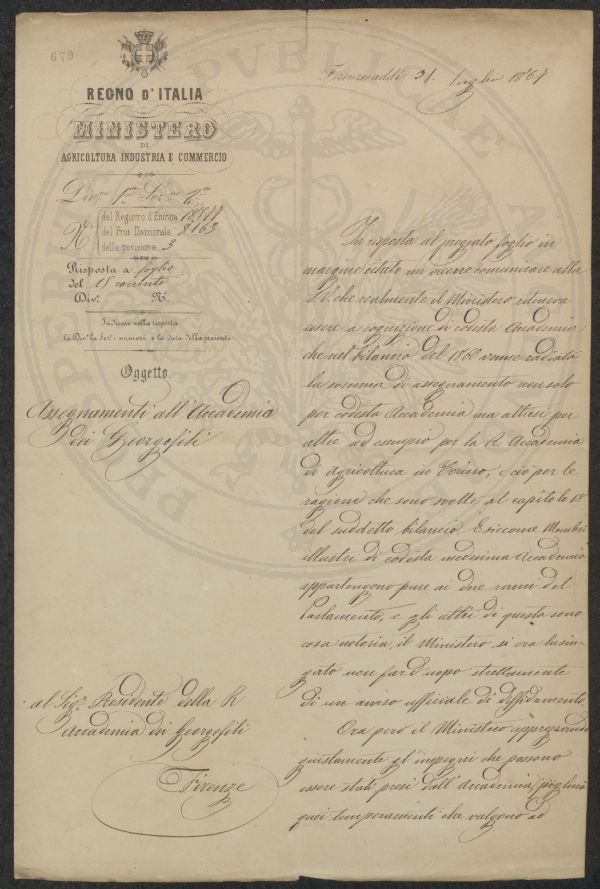 679
Firenze addì 31. Luglio 1867
REGNO D'ITALIA
MINISTERO
DI
AGRICOLTURA INDUSTRIA E COMMERCIO
Div.ne 1.a Sez.ne 2.a
N.° del Registro d'Entrata
del Prot. Divisionale 8163
della posizione 3
Risposta a foglio
del 18 corrente
Div.a N.
Indicare nella risposta
la Div.e la Sez.e i numeri e la data della presente
Oggetto
Assegnamenti all'Accademia
dei Georgofili
Al Sig.r Presidente della R.
Accademia dei Georgofili
Firenze
In risposta al pregiato foglio in
margine citato mi occorre comunicare alla
S.V. che realmente il Ministero riteneva
essere a cognizione di codesta Accademia
che nel bilancio del 1868 venne radiata
la somma di assegnamento non solo
per codesta Accademia ma altresì per
altre ad esempio per la R. Accademia
di Agricoltura in Torino, e ciò per le
ragioni che sono svolte al capitolo 18
del suddetto bilancio. E siccome Membri
illustri di codesta medesima Accademia
appartengono pure ai due rami del
Parlamento, e gli altri di questa sono
cosa notoria, il Ministero si era lusin-
gato non far d'uopo strettamente
di un avviso ufficiale di diffidamento.
Ora però il Ministero apprezzando
giustamente gl'impegni che possono
essere stati presi dall'Accademia,
quei temperamenti che valgono ad